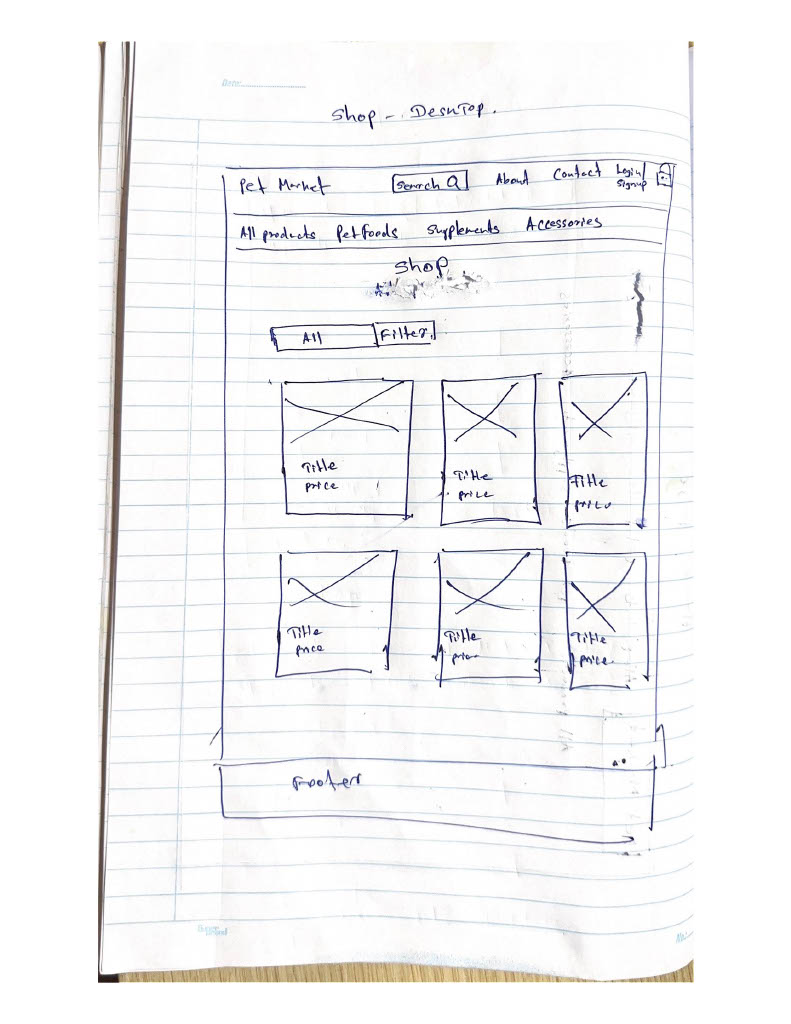 Date:
Shop - DeskTop.
Pet Market Search About Contact Login/ Signup
All products Pet foods Supplements Accessories
Shop
All Filter
Title Title Title
price price price
Title Title Title
price price price
Footer
No: